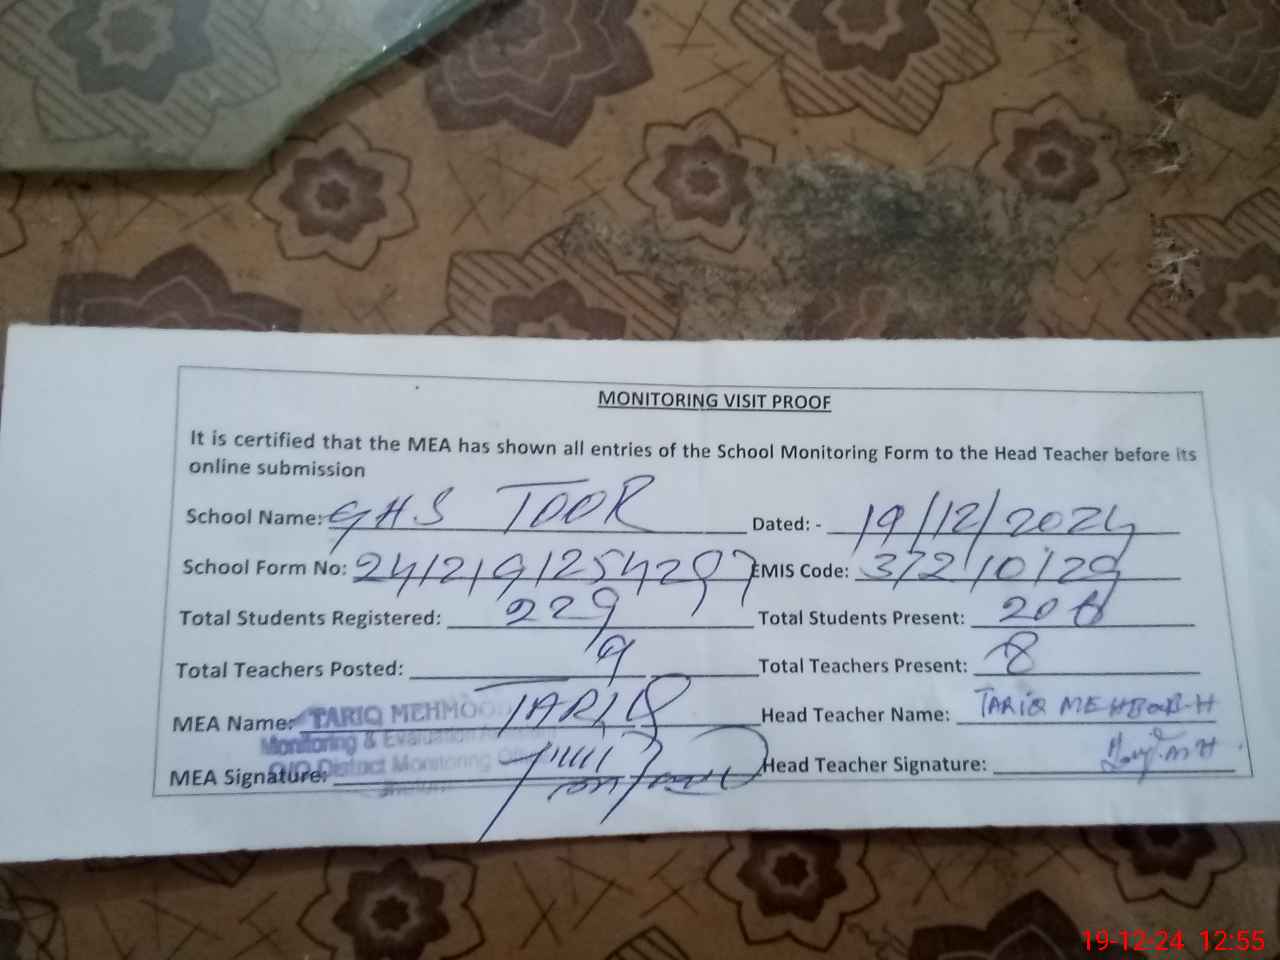 MONITORING VISIT PROOF
It is certified that the MEA has shown all entries of the School Monitoring Form to the Head Teacher before its
online submission
School Name: GHS TOOR Dated: - 19/12/2024
School Form No: EMIS Code: 37210129
Total Students Registered: 229 Total Students Present:
Total Teachers Posted: 9 Total Teachers Present: 8
MEA Name: TARIQ MEHMOO TARIQ Head Teacher Name: TARIQ MEHBOOB-H
Monitoring & Evaluation
MEA Signature: O/O District Monitoring Head Teacher Signature:
19-12-24 12:55